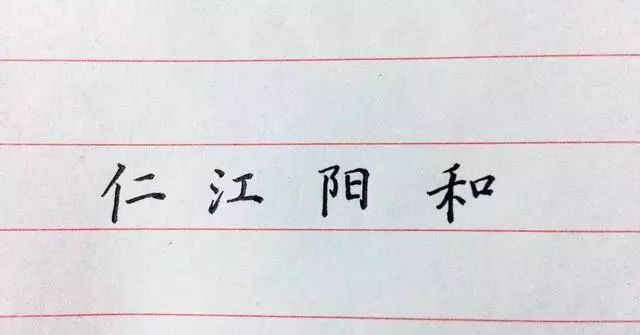 仁江阳和